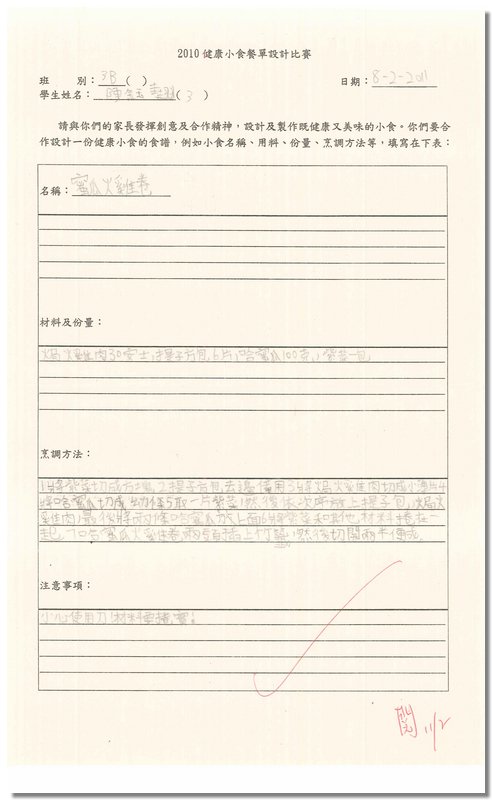 2010 健康小食餐單設計比賽
班 別： 3B ( )
日期： 8-2-2011
學生姓名： 陳 ( 3 )
請與你們的家長發揮創意及合作精神，設計及製作既健康又美味的小食。你們要合
作設計一份健康小食的食譜，例如小食名稱、用料、份量、烹調方法等，填寫在下表：
名稱： 蜜瓜火雞卷
材料及份量：
焗火雞肉30安士，提子方包6片，哈蜜瓜100克，紫菜一包
烹調方法：
1將紫菜切成方塊，2提子方包去邊備用3將焗火雞肉切成小薄片4
將哈蜜瓜切成幼條5取一片紫菜，然後依次序放上提子包，焗火
雞肉，最後將兩條哈蜜瓜放上面6將紫菜和其他材料捲在一
起 7哈蜜瓜火雞卷兩頭插上竹籤，然後切開兩半便成
注意事項：
小心使用刀，材料要捲實。
閱 11/2